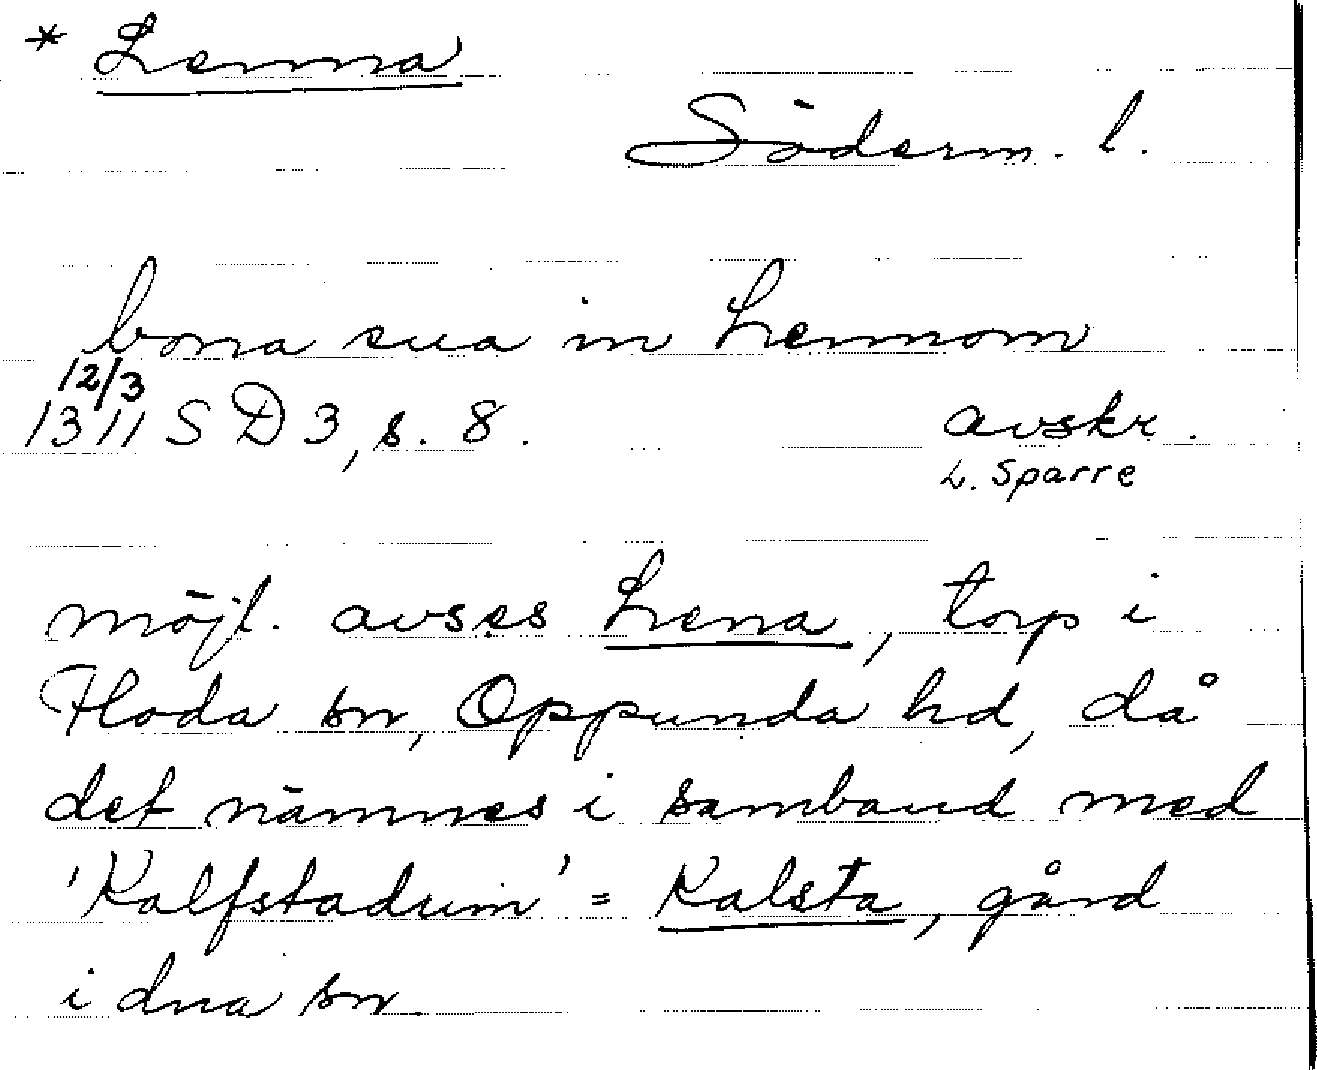 * Lenna
Söderm. l.
bona sua in Lennom
12/3
1311 SD 3, s. 8.
avskr.
L. Sparre
möjl. avses Lena, torp i
Floda sn, Oppunda hd, då
det nämnes i samband med
'Kalfstadum' = Kalsta, gård
i dna sn.